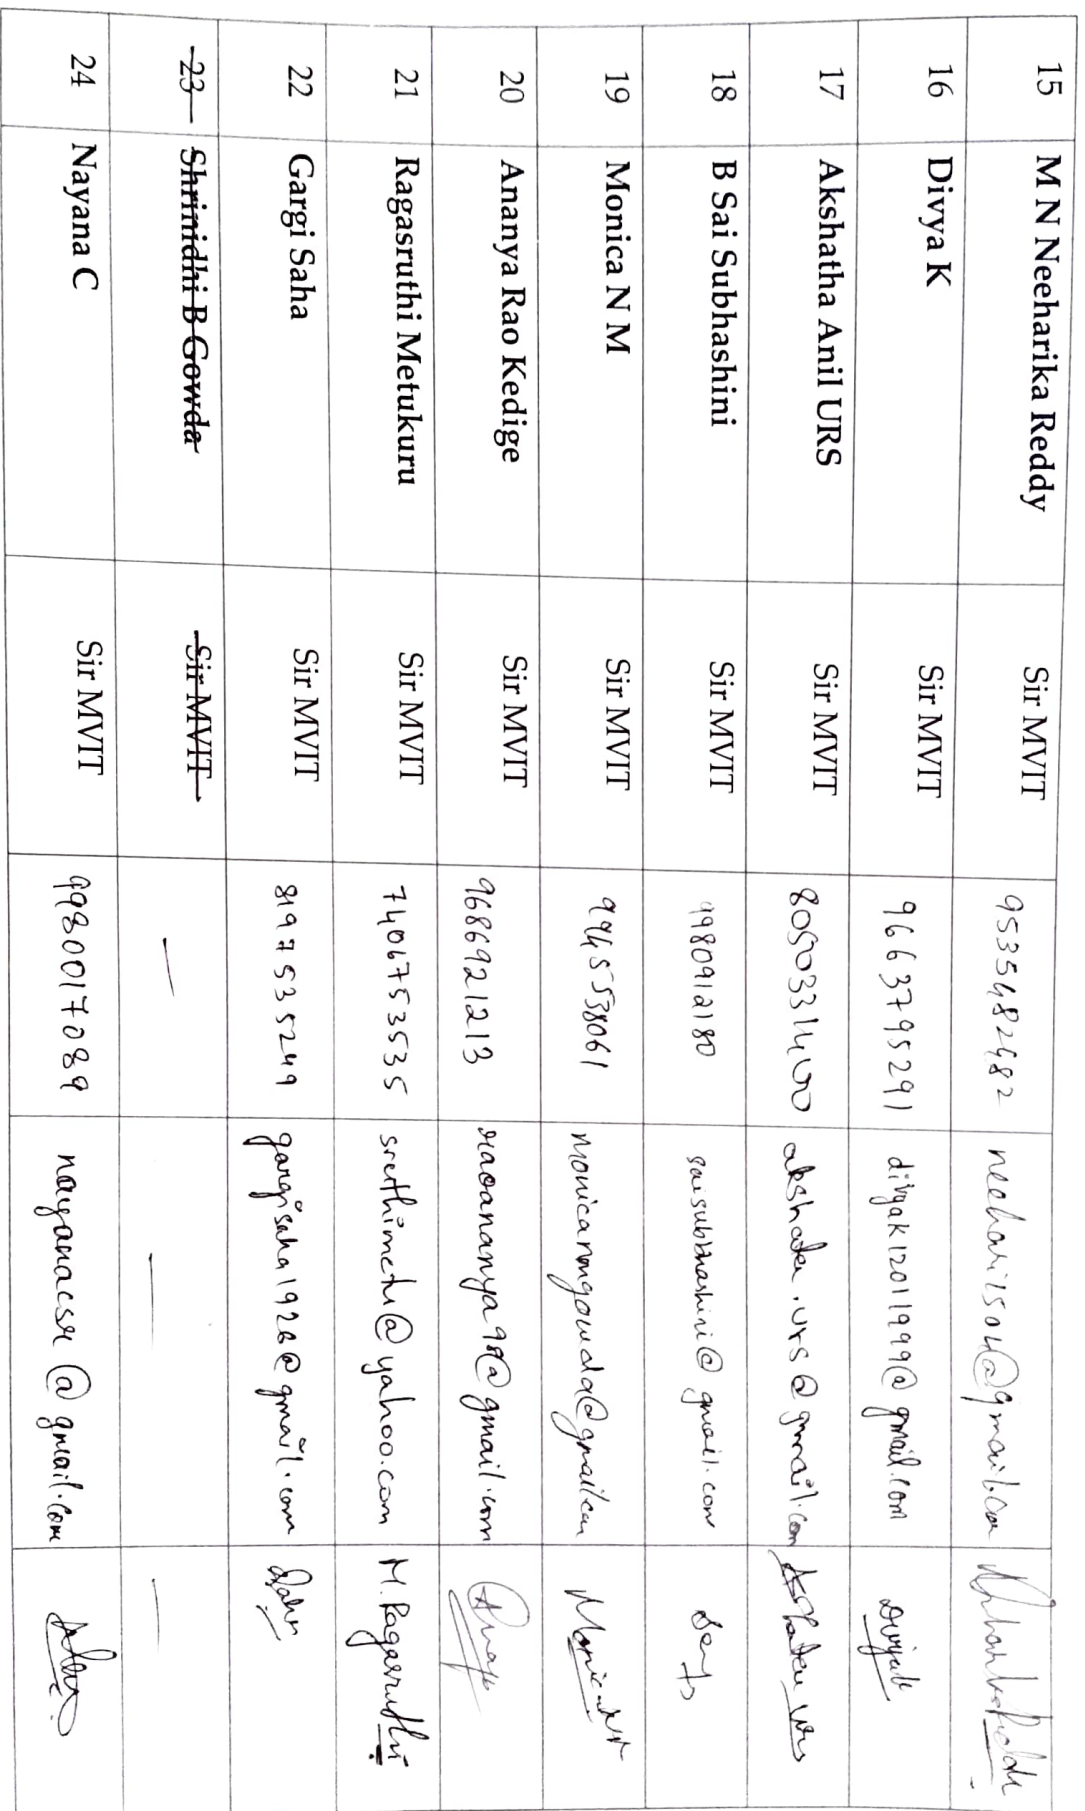 15 M N Neeharika Reddy Sir MVIT 9535482482
16 Divya K Sir MVIT 9663795291 divyak12011999@gmail.com Divyak
17 Akshatha Anil URS Sir MVIT 8050331400 akshatha.urs@gmail.com
18 B Sai Subhashini Sir MVIT 9980912180 saisubhashini@gmail.com
19 Monica N M Sir MVIT 9945538061 monicanmgowda@gmail.com
20 Ananya Rao Kedige Sir MVIT 9686921213 raoananya98@gmail.com
21 Ragasruthi Metukuru Sir MVIT 7406753535 sruthimetu@yahoo.com M.Ragasruthi
22 Gargi Saha Sir MVIT 8197535249 gargisaha1926@gmail.com
23 Shrinidhi B Gowda Sir MVIT — — —
24 Nayana C Sir MVIT 9980017089 nayanacsr@gmail.com